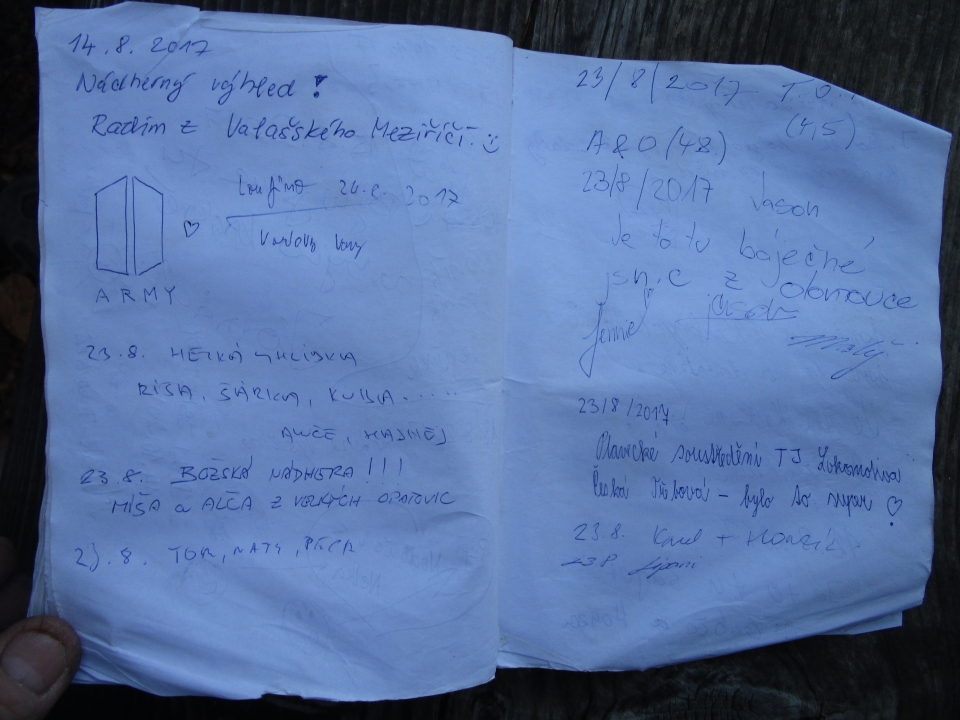 14.8. 2017
Nádherný výhled!
Radim z Valašského Meziříčí. :)
24.8. 2017
Karlovy Vary
ARMY
23.8. HEZKÁ VYHLÍDKA
RÍŠA, ŠÁRKA, KUBA......
23.8. BOŽSKÁ NÁDHERA!!!
MÍŠA a ALČA Z VELKÝCH OPATOVIC
8. TOM, NATY,
23/8/2017 T.O...
(4,5)
A&O (48)
23/8/2017 Jason
Je to tu báječné
z Olomouce
23/8/2017
Plavecké soustředění TJ Lokomotiva
Česká Třebová – bylo to super ♡
23.8. Karel + Honzík
23.8.